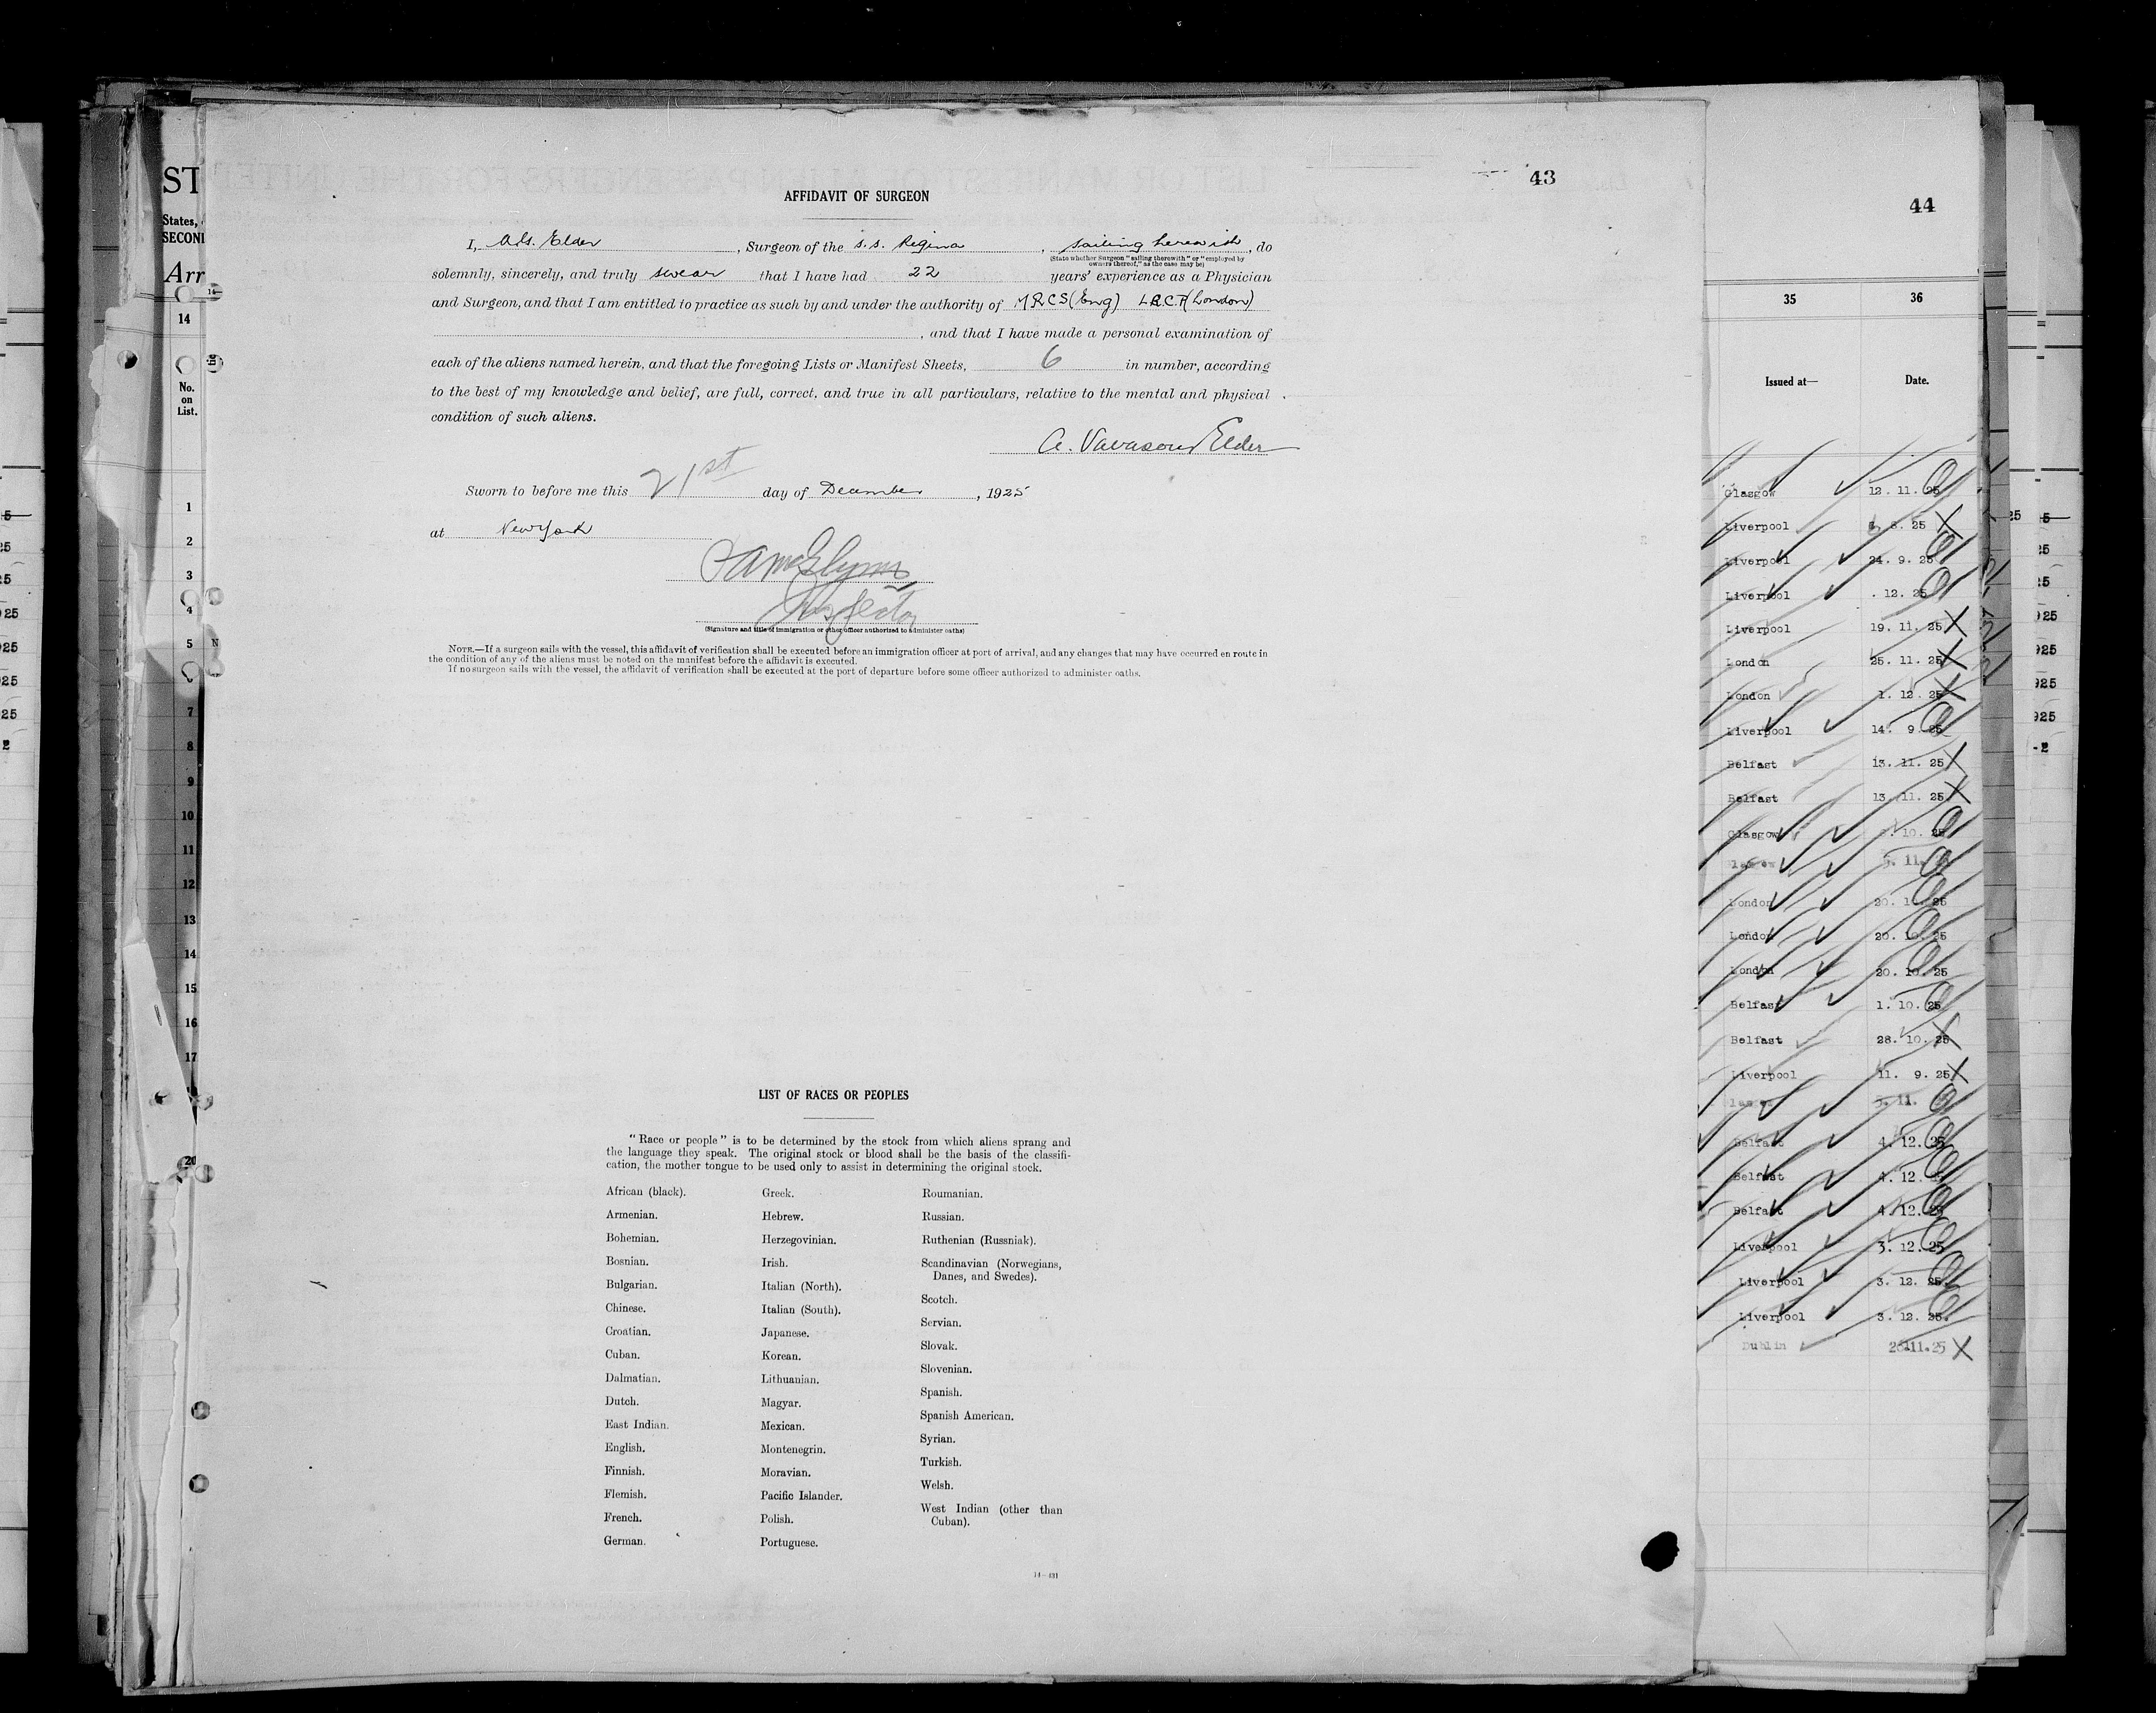 43
AFFIDAVIT OF SURGEON
I, Elder, Surgeon of the s.s. Regina, sailing herewith, do
(State whether Surgeon "sailing therewith" or "employed by
owners thereof," as the case may be)
solemnly, sincerely, and truly swear that I have had 22 years' experience as a Physician
and Surgeon, and that I am entitled to practice as such by and under the authority of MRCS (Eng) (London)
, and that I have made a personal examination of
each of the aliens named herein, and that the foregoing Lists or Manifest Sheets, 6 in number, according
to the best of my knowledge and belief, are full, correct, and true in all particulars, relative to the mental and physical
condition of such aliens.
A. Vavasour Elder
Sworn to before me this 21st day of December, 1925
at New York
Inspector
(Signature and title of immigration or other officer authorized to administer oaths)
NOTE.—If a surgeon sails with the vessel, this affidavit of verification shall be executed before an immigration officer at port of arrival, and any changes that may have occurred en route in
the condition of any of the aliens must be noted on the manifest before the affidavit is executed.
If no surgeon sails with the vessel, the affidavit of verification shall be executed at the port of departure before some officer authorized to administer oaths.
LIST OF RACES OR PEOPLES
"Race or people" is to be determined by the stock from which aliens sprang and
the language they speak. The original stock or blood shall be the basis of the classifi-
cation, the mother tongue to be used only to assist in determining the original stock.
African (black).
Armenian.
Bohemian.
Bosnian.
Bulgarian.
Chinese.
Croatian.
Cuban.
Dalmatian.
Dutch.
East Indian.
English.
Finnish.
Flemish.
French.
German.
Greek.
Hebrew.
Herzegovinian.
Irish.
Italian (North).
Italian (South).
Japanese.
Korean.
Lithuanian.
Magyar.
Mexican.
Montenegrin.
Moravian.
Pacific Islander.
Polish.
Portuguese.
Roumanian.
Russian.
Ruthenian (Russniak).
Scandinavian (Norwegians,
Danes, and Swedes).
Scotch.
Servian.
Slovak.
Slovenian.
Spanish.
Spanish American.
Syrian.
Turkish.
Welsh.
West Indian (other than
Cuban).
ST
States,
SECON
Arr
14
No.
on
List.
1
2
3
4
5
7
8
9
10
11
12
13
14
15
16
17
20
44
35 36
Issued at— Date.
Glasgow 12. 11. 25
Liverpool 8. 25
Liverpool 24. 9. 25
Liverpool . 12. 25
Liverpool 19. 11. 25
London 25. 11. 25
London 1. 12. 25
Liverpool 14. 9. 25
Belfast 13. 11. 25
Belfast 13. 11. 25
Glasgow 10. 25
11.
London 20. 10. 25
London 20. 10. 25
London 20. 10. 25
Belfast 1. 10. 25
Belfast 28. 10. 25
Liverpool 11. 9. 25
11.
Belfast 4. 12. 25
Belfast 4. 12.
Belfast 4. 12. 25
Liverpool 3. 12. 25
Liverpool 3. 12. 25.
Liverpool 3. 12. 25.
Dublin 26.11.25